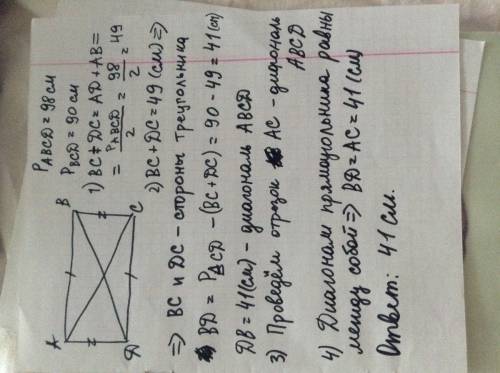 B
A
C
D
P_ABCD = 98 см
P_BCD = 90 см
1) BC + DC = AD + AB =
= P_ABCD / 2 = 98 / 2 = 49
2) BC + DC = 49 (см) ⇒
⇒ BC и DC - стороны треугольника
BD = P_BCD - (BC + DC) = 90 - 49 = 41 (см)
DB = 41 (см) - диагональ ABCD
3) Проведём отрезок AC - диагональ
ABCD
4) Диагонали прямоугольника равны
между собой ⇒ BD = AC = 41 (см)
Ответ: 41 см.